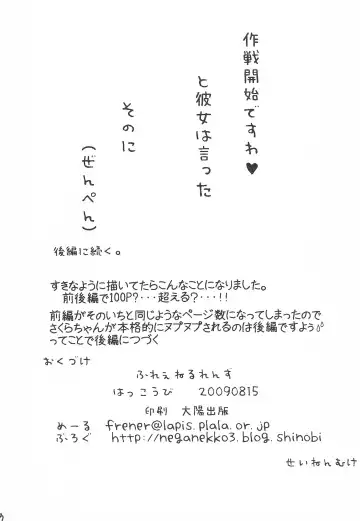 作戦開始ですわ♥
と彼女は言った
そのに
(ぜんぺん)
後編に続く。
すきなように描いてたらこんなことになりました。
前後編で100P?・・・超える?・・・!!
前編がそのいちと同じようなページ数になってしまったので
さくらちゃんが本格的にヌプヌプされるのは後編ですよぅ
ってことで後編につづく
おくづけ
ふれえねるれんす
はっこうび 20090815
印刷 大陽出版
めーる frener@lapis.plala.or.jp
ぶろぐ http://neganekko3.blog.shinobi
せいねんむけ